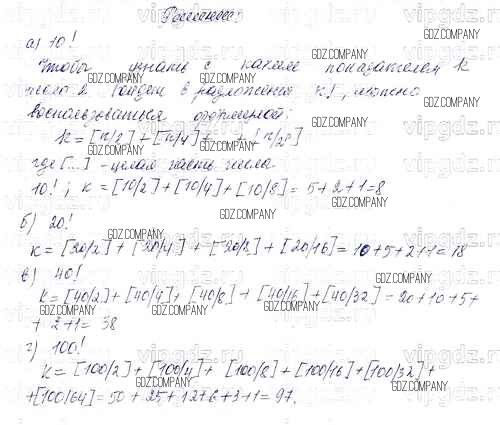 Решение:
а) 10!
Чтобы узнать с каким показателем k
число 2 войдет в разложение k!, можно
воспользоваться формулой:
k = [n/2] + [n/4] + + [n/2ᵖ]
где [...] - целая часть числа
10! ; k = [10/2] + [10/4] + [10/8] = 5+2+1=8
б) 20!
k = [20/2] + [20/4] + [20/8] + [20/16] = 10+5+2+1=18
в) 40!
k = [40/2] + [40/4] + [40/8] + [40/16] + [40/32] = 20+10+5+
+ 2+1= 38
г) 100!
k = [100/2] + [100/4] + [100/8] + [100/16] + [100/32] +
+[100/64] = 50 + 25 + 12+6+3+1=97.